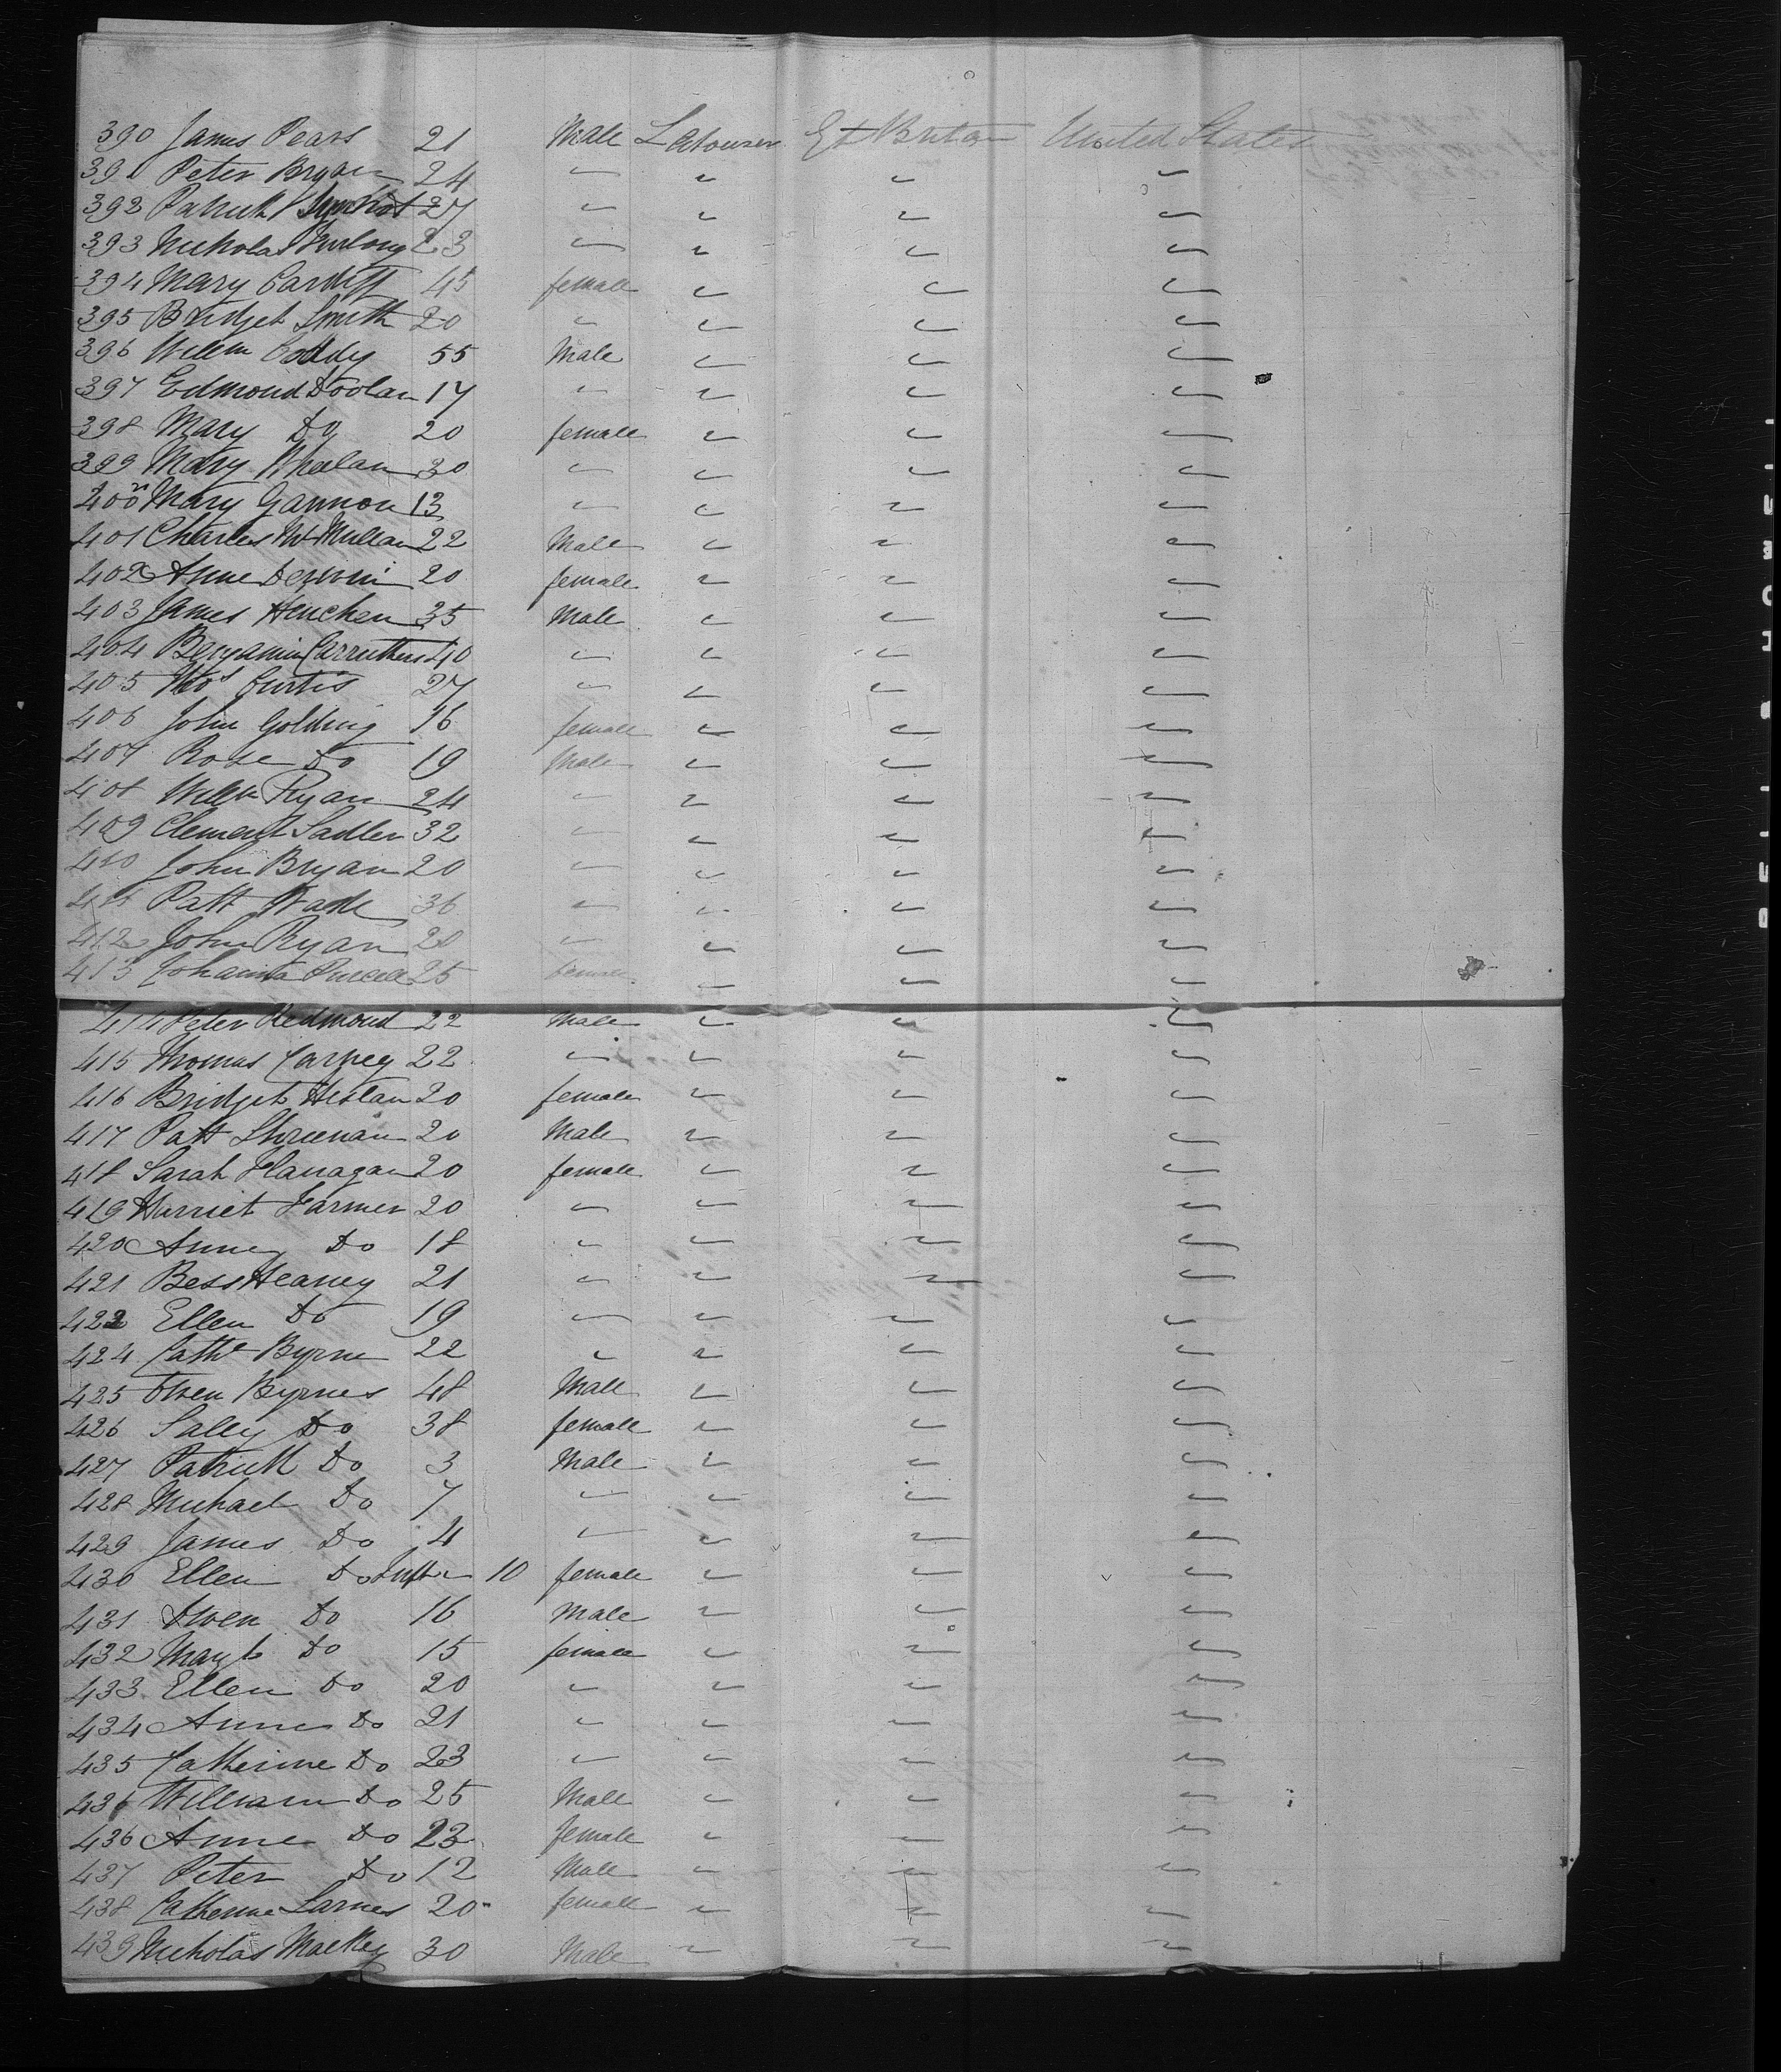 390 James Pears 21 Male Labourer Gt Britain United States
391 Peter Bryan 24 " " " "
392 Patrick 27 " " " "
393 Nicholas Furlong 23 " " " "
394 Mary Cardiff 45 female " " "
395 Bridget Smith 20 " " " "
396 Willm Coddy 55 Male " " "
397 Edmond Doolan 17 " " " "
398 Mary Do 20 female " " "
399 Mary Whelan 30 " " " "
400 Mary Gannon 13 " " " "
401 Charles McMullan 22 Male " " "
402 Anne 20 female " " "
403 James Henchen 35 Male " " "
404 Benjamin Carruthers 40 " " " "
405 Thos Curtis 27 " " " "
406 John Golding 16 female " " "
407 Rose Do 19 Male " " "
408 Willm Ryan 24 " " " "
409 Clement Sadler 32 " " " "
410 John Bryan 20 " " " "
411 Patt Wade 36 " " " "
412 John Ryan 20 " " " "
413 Johanna Purcell 25 female " " "
414 Peter Redmond 22 Male " " "
415 Thomas Carney 22 " " " "
416 Bridget Heslan 20 female " " "
417 Patt 20 Male " " "
418 Sarah Flanagan 20 female " " "
419 Harriet Farmer 20 " " " "
420 Anne Do 18 " " " "
421 Bess Heaney 21 " " " "
422 Ellen Do 19 " " " "
424 Cathe Byrne 22 " " " "
425 Owen Byrnes 48 Male " " "
426 Sally Do 38 female " " "
427 Patrick Do 3 Male " " "
428 Michael Do 7 " " " "
429 James Do 4 " " " "
430 Ellen Do Inft 10 female " " "
431 Owen Do 16 Male " " "
432 Mary Do 15 female " " "
433 Ellen Do 20 " " " "
434 Anne Do 21 " " " "
435 Catherine Do 23 " " " "
436 William Do 25 Male " " "
436 Anne Do 23 female " " "
437 Peter Do 12 Male " " "
438 Catherine Larnes 20 female " " "
439 Nicholas Mackey 30 Male " " "